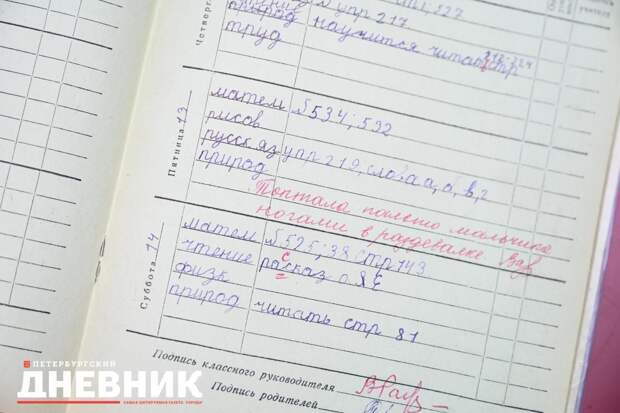 Четверг
упр 217
природ научится читать стр
труд
Пятница 13
матем № 534; 532
рисов
русск яз упр 219, слова а, б, в, г
природ
Топтала пальто мальчика
ногами в раздевалке
Суббота 14
матем № 525; 38 стр 143
чтение расказ
с
физк
природ читать стр 81
Подпись классного руководителя
Подпись родителей
ПЕТЕРБУРГСКИЙ
ДНЕВНИК